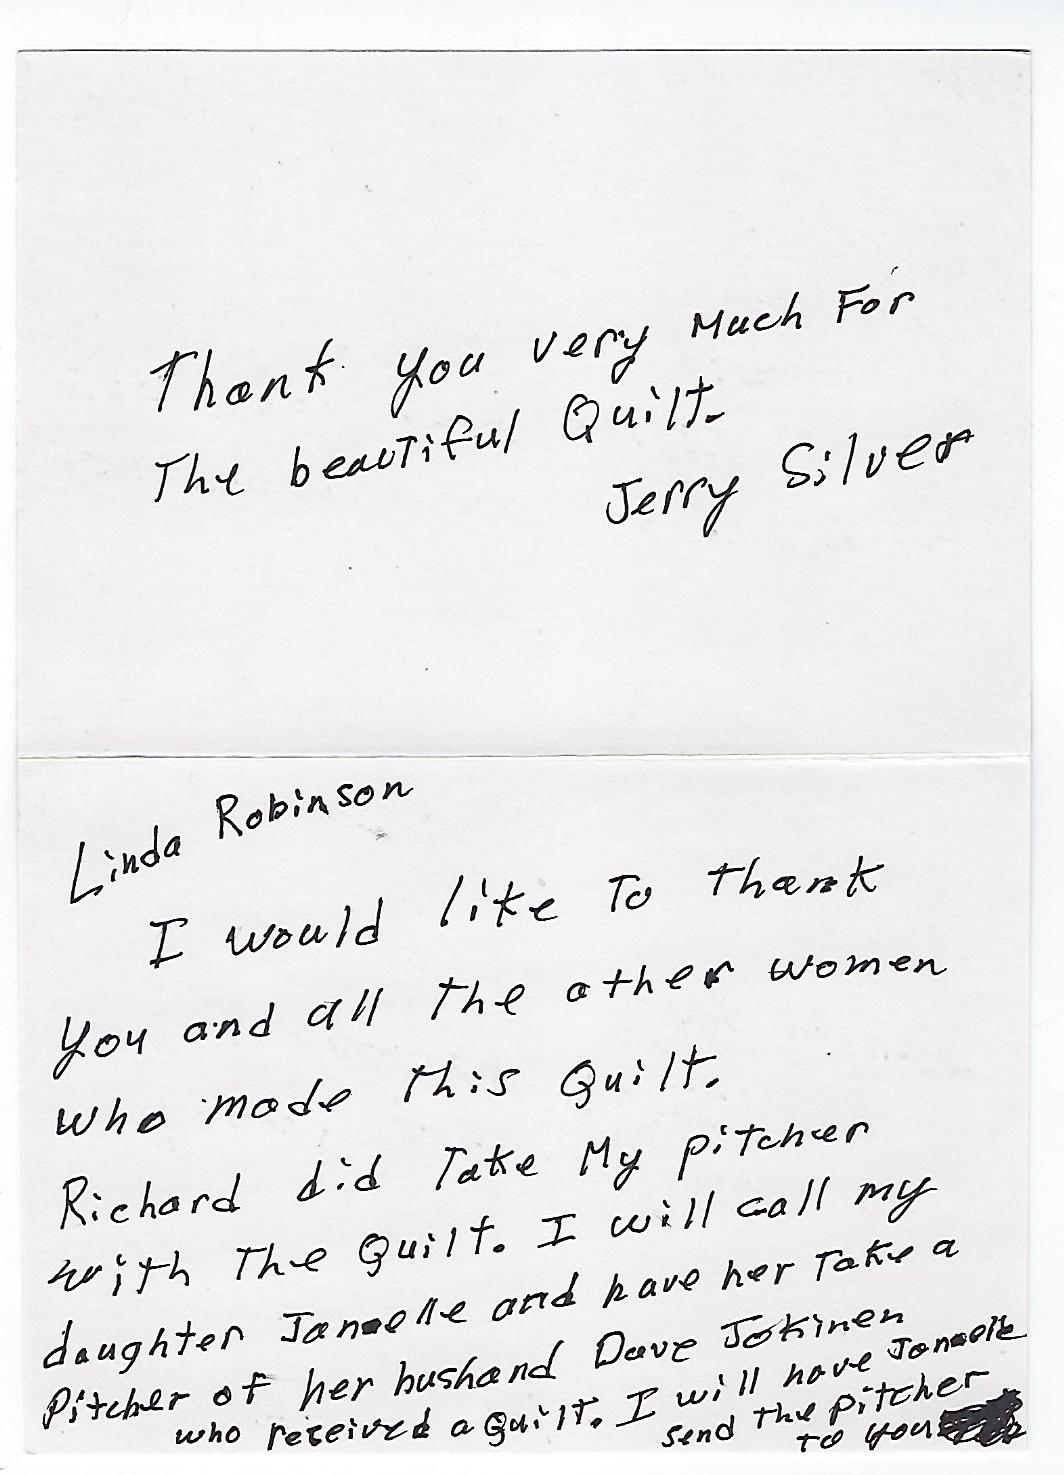 Thank you very Much For
The beautiful Quilt.
Jerry Silver
Linda Robinson
I would like To thank
you and all the other women
who made this Quilt.
Richard did Take My pitcher
with The Quilt. I will call my
daughter Janaelle and have her Take a
Pitcher of her husband Dave Jokinen
who received a Quilt. I will have Janaelle
send the pitcher
to you